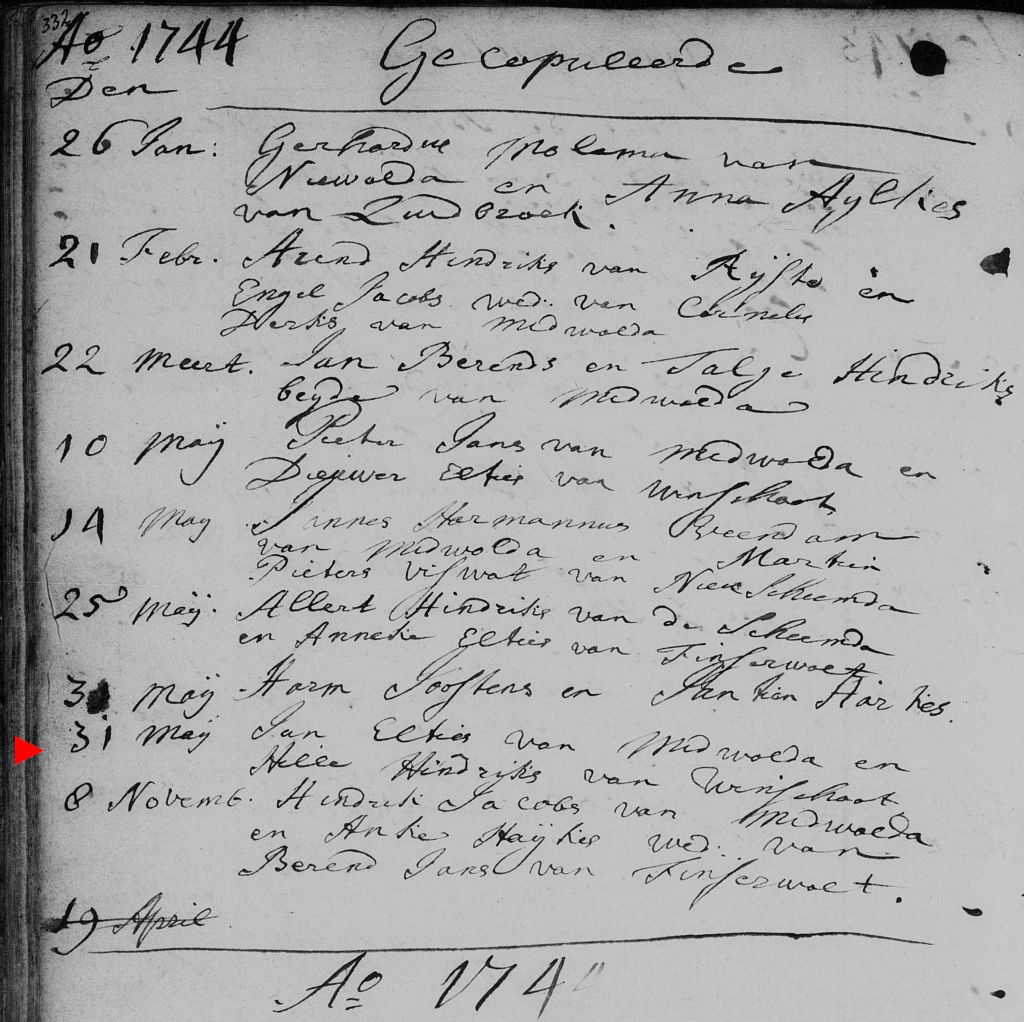 332
Ao 1744 Gecopuleerde
Den
26 Jan: Gerhardus Molema van
Niewolda en Anna Aylkes
van Zuidbroek.
21 Febr. Arend Hindriks van en
Engel Jacobs wed: van Cornelis
Derks van Midwolda
22 Meert. Jan Berends en Talje Hindriks
beyde van Midwolda
10 Maij Pieter Jans van Midwolda en
Diewer Elties van Winschoot
14 May Jannes Harmannus Veendam
van Midwolda en Martien
Pieters Viswat van Niew Scheemda
25 Maij. Allert Hindriks van de Scheemda
en Anneke Elties van Finserwolt
31 Maij Harm Joostens en Jantien Harkes.
31 Maij Jan Elties van Midwolda en
Hille Hindrijks van Winschoot
8 Novemb. Hindrik Jacobs van Midwolda
en Anke Haijkes wed: van
Berend Jans van Finserwolt.
19 April
Ao 174